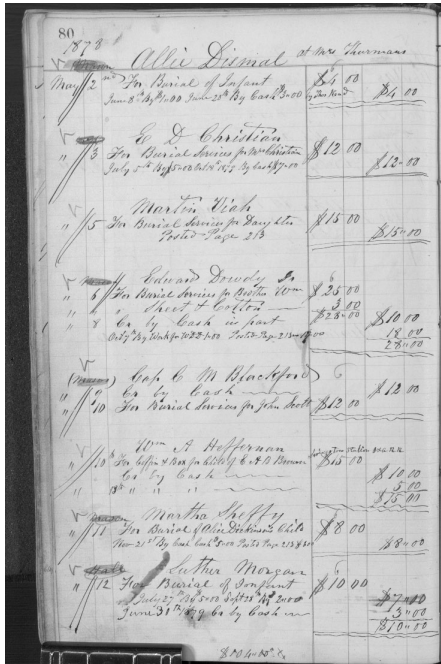 80
1878
Allie Dismal at Mrs Thurmans
May 2nd For Burial of Infant $4 00
June 8th By $1.00 June 20th By Cash $3.00 $4.00
" 3 E D Christian
For Burial Services for Mrs Christian $12 00
July 5th By $5.00 By Cash $7.00 $12.00
Martin Viah
" 5 For Burial Services for Daughter $15 00
Posted Page 213 $15.00
Edward Dowdy Jr
" 6 For Burial Services for Brother Wm $25 00
" " " Sheet & Cotton 3 00
" 8 Cr by Cash in part $28.00 $10 00
By Work for Posted Page 213 18 00
28.00
Cap C M Blackford
" 9 Cr by Cash $12 00
" 10 For Burial Services for John Scott $12 00
Wm A Heffernan
" 10th For Coffin & Box for Child of $15 00
" " Cr by Cash $10 00
" 18th " " " 5 00
$15 00
Martha Sheffy
" 11 For Burial of Alice Dickinson Child $8 00
Nov 21st By Cash 5.00 Posted Page 213 $8.00
Luther Morgan
" 12 For Burial of Infant $10 00
July 27th By 5.00 Sept 28th By 2.00 $7.00
June 1879 Cr by Cash 3.00
$10.00